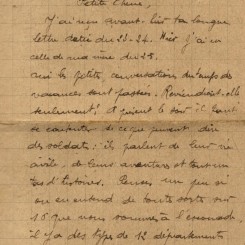 Petite Chérie,
J'ai reçu avant-hier ta longue
lettre datée du 23-24. Hier j'ai eu
celle de ma mère du 25.
ainsi les petites conversations du temps de
vacances sont passées. Reviendront-elles
seulement! A quient le soir il faut
se contenter de ce que peuvent dire
des soldats: ils parlent de leur vie
civile, de leurs aventures et tout un
tas d'histoires. Penses un peu si
on en entend de toutes sortes sur
16 que nous sommes à l'escouade
il y a des types de 12 départements